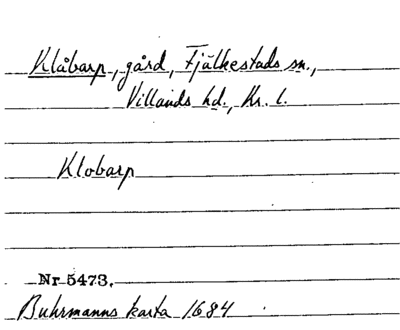 Klåbarp, gård, Fjälkestads sn.,
Villands hd., Kr. l.
Klobarp
Nr 5473.
Buhrmanns karta 1684